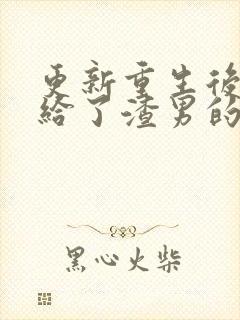 更新重生後
給了渣男的
黑心火柴